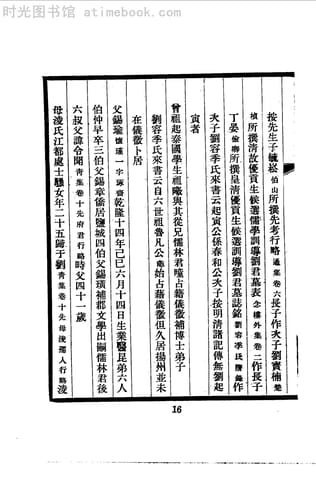 时光图书馆 - atimebook.com
按先生子毓崧伯山所撰先考行略通集卷六長子作次子劉寶楠楚
楨所撰清故優貢生候選儒學訓導劉君墓表念樓外集卷二作長子
丁晏儉卿所撰皇清優貢生候選訓導劉君墓誌銘劉容季氏謄錄作
次子劉容季氏來書云起寅公係春和公次子按明清諸記傳無劉起
寅者
曾祖起泰國學生祖曦與其從兄儒林君瞳占籍儀徵補博士弟子
劉容季氏來書云自六世祖魯凡公始占籍儀徵但久居揚州並未
在儀徵卜居
父錫瑜懷瑾一字琢齋乾隆十四年己巳六月十四日生業醫昆弟六人
伯仲早卒三伯父錫章僑居鹽城四伯父錫璜補郡文學出嗣儒林君後
六叔父諱令聞青集卷十先府君行略時父四十一歲
母淩氏江都處士騷女年二十五歸于劉青集卷十先母淩孺人行略淩
16